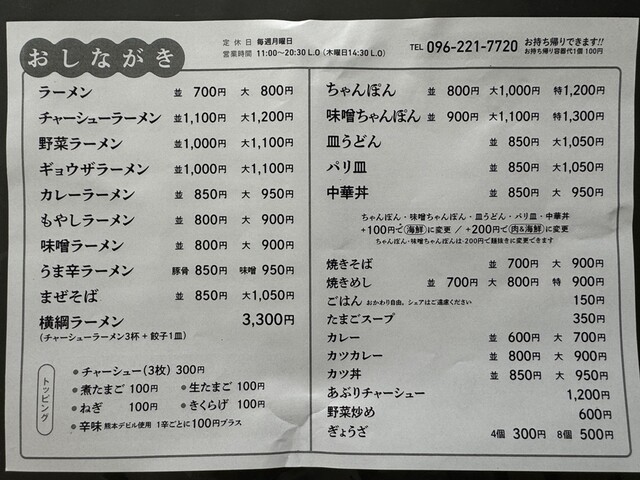 おしながき
定休日 毎週月曜日
営業時間 11:00〜20:30L.O（木曜日14:30L.O）
TEL 096-221-7720
お持ち帰りできます!!
お持ち帰り容器代1個100円
ラーメン 並 700円 大 800円
チャーシューラーメン 並1,100円 大1,200円
野菜ラーメン 並1,000円 大1,100円
ギョウザラーメン 並1,000円 大1,100円
カレーラーメン 並 850円 大 950円
もやしラーメン 並 800円 大 900円
味噌ラーメン 並 800円 大 900円
うま辛ラーメン 豚骨 850円 味噌 950円
まぜそば 並 850円 大1,050円
横綱ラーメン 3,300円
（チャーシューラーメン3杯＋餃子1皿）
トッピング
●チャーシュー（3枚）300円
●煮たまご 100円 ●生たまご 100円
●ねぎ 100円 ●きくらげ 100円
●辛味 熊本デビル使用 1辛ごとに100円プラス
ちゃんぽん 並 800円 大1,000円 特1,200円
味噌ちゃんぽん 並 900円 大1,100円 特1,300円
皿うどん 並 850円 大1,050円
パリ皿 並 850円 大1,050円
中華丼 並 850円 大 950円
ちゃんぽん・味噌ちゃんぽん・皿うどん・パリ皿・中華丼
＋100円で海鮮に変更 / ＋200円で肉&海鮮に変更
ちゃんぽん・味噌ちゃんぽんは-200円で麺抜きに変更できます
焼きそば 並 700円 大 900円
焼きめし 並 700円 大 800円 特 900円
ごはん おかわり自由。シェアはご遠慮ください 150円
たまごスープ 350円
カレー 並 600円 大 700円
カツカレー 並 800円 大 900円
カツ丼 並 850円 大 950円
あぶりチャーシュー 1,200円
野菜炒め 600円
ぎょうざ 4個 300円 8個 500円